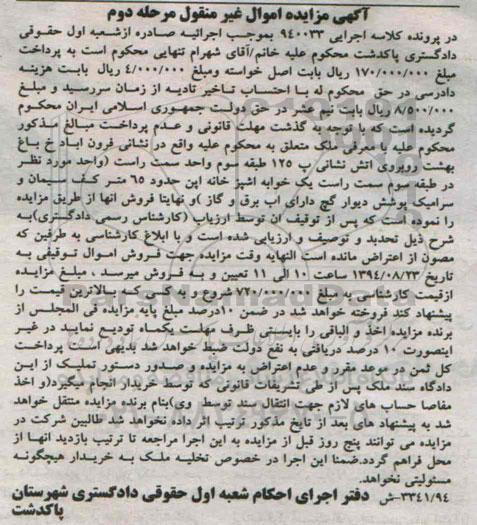 آگهی مزایده اموال غیر منقول مرحله دوم
در پرونده کلاسه اجرایی ۹۴۰۰۳۳ بموجب اجرائیه صادره ازشعبه اول حقوقی
دادگستری پاکدشت محکوم علیه خانم/آقای شهرام تنهایی محکوم است به پرداخت
مبلغ ۱۷۰/۰۰۰/۰۰۰ ریال بابت اصل خواسته ومبلغ ۴/۰۰۰/۰۰۰ ریال بابت هزینه
دادرسی در حق محکوم له با احتساب تاخیر تادیه از زمان سررسید و مبلغ
۸/۵۰۰/۰۰۰ ریال بابت نیم عشر در حق دولت جمهوری اسلامی ایران محکوم
گردیده است که با توجه به گذشت مهلت قانونی و عدم پرداخت مبالغ مذکور
محکوم علیه با معرفی ملک متعلق به محکوم علیه واقع در نشانی قرون اباد خ باغ
بهشت روبروی اتش نشانی پ ۱۲۵ طبقه سوم واحد سمت راست (واحد مورد نظر
در طبقه سوم سمت راست یک خوابه اشپز خانه اپن حدود ۶۵ متر کف سیمان و
سرامیک پوشش دیوار گچ دارای اب برق و گاز )و نهایتا فروش انها از طریق مزایده
را نموده است که پس از توقیف ان توسط ارزیاب (کارشناس رسمی دادگستری)به
شرح ذیل تحدید و توصیف و ارزیابی شده است و با ابلاغ کارشناسی به طرفین که
مصون از اعتراض مانده است النهایه وقت مزایده جهت فروش اموال توقیفی به
تاریخ ۱۳۹۴/۰۸/۲۳ ساعت ۱۰ الی ۱۱ تعیین و به فروش میرسد ، مبلغ مزایده
ازقیمت کارشناسی به مبلغ ۷۲۰/۰۰۰/۰۰۰ شروع و به کسی که بالاترین قیمت را
پیشنهاد کند فروخته خواهد شد در ضمن ۱۰درصد مبلغ پایه مزایده فی المجلس از
برنده مزایده اخذ و الباقی را بایستی ظرف مهلت یکماه تودیع نمایید در غیر
اینصورت ۱۰ درصد دریافتی به نفع دولت ضبط خواهد شد بدیهی است پرداخت
کل ثمن در موعد مقرر، عدم اعتراض به مزایده و صدور دستور تملیک از این
دادگاه سند ملک پس از طی تشریفات قانونی که توسط خریدار انجام میگیرد(و اخذ
مفاصا حساب های لازم جهت انتقال سند توسط وی)بنام برنده مزایده منتقل خواهد
شد به پیشنهاد های بعد از تایخ مذکور ترتیب اثر داده نخواهد شد طالبین شرکت در
مزایده می توانند پنج روز قبل از مزایده به این اجرا مراجعه تا ترتیب بازدید انها از
محل فراهم گردد.ضمنا این اجرا در خصوص تخلیه ملک به خریدار هیچگونه
مسئولیتی نخواهد.
۳۳۴۱/۹۴-ش دفتر اجرای احکام شعبه اول حقوقی دادگستری شهرستان
پاکدشت
ParsNamadData